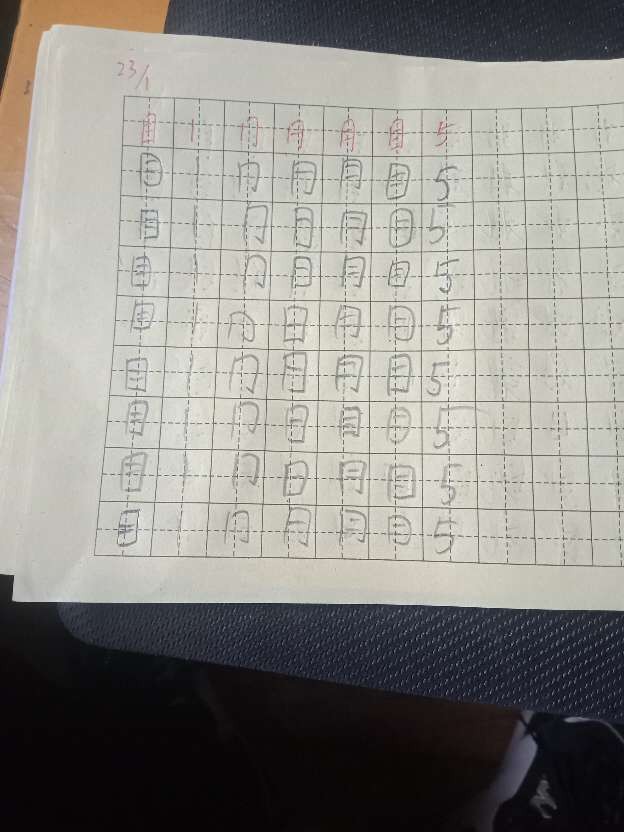 23/1
目 丨 冂 ⺆ 月 目 5
目 丨 冂 月 目 5
目 丨 冂 月 目 5
目 丨 冂 月 目 5
目 丨 冂 月 目 5
目 丨 冂 月 目 5
目 丨 冂 月 目 5
目 丨 冂 月 目 5
目 丨 冂 月 目 5